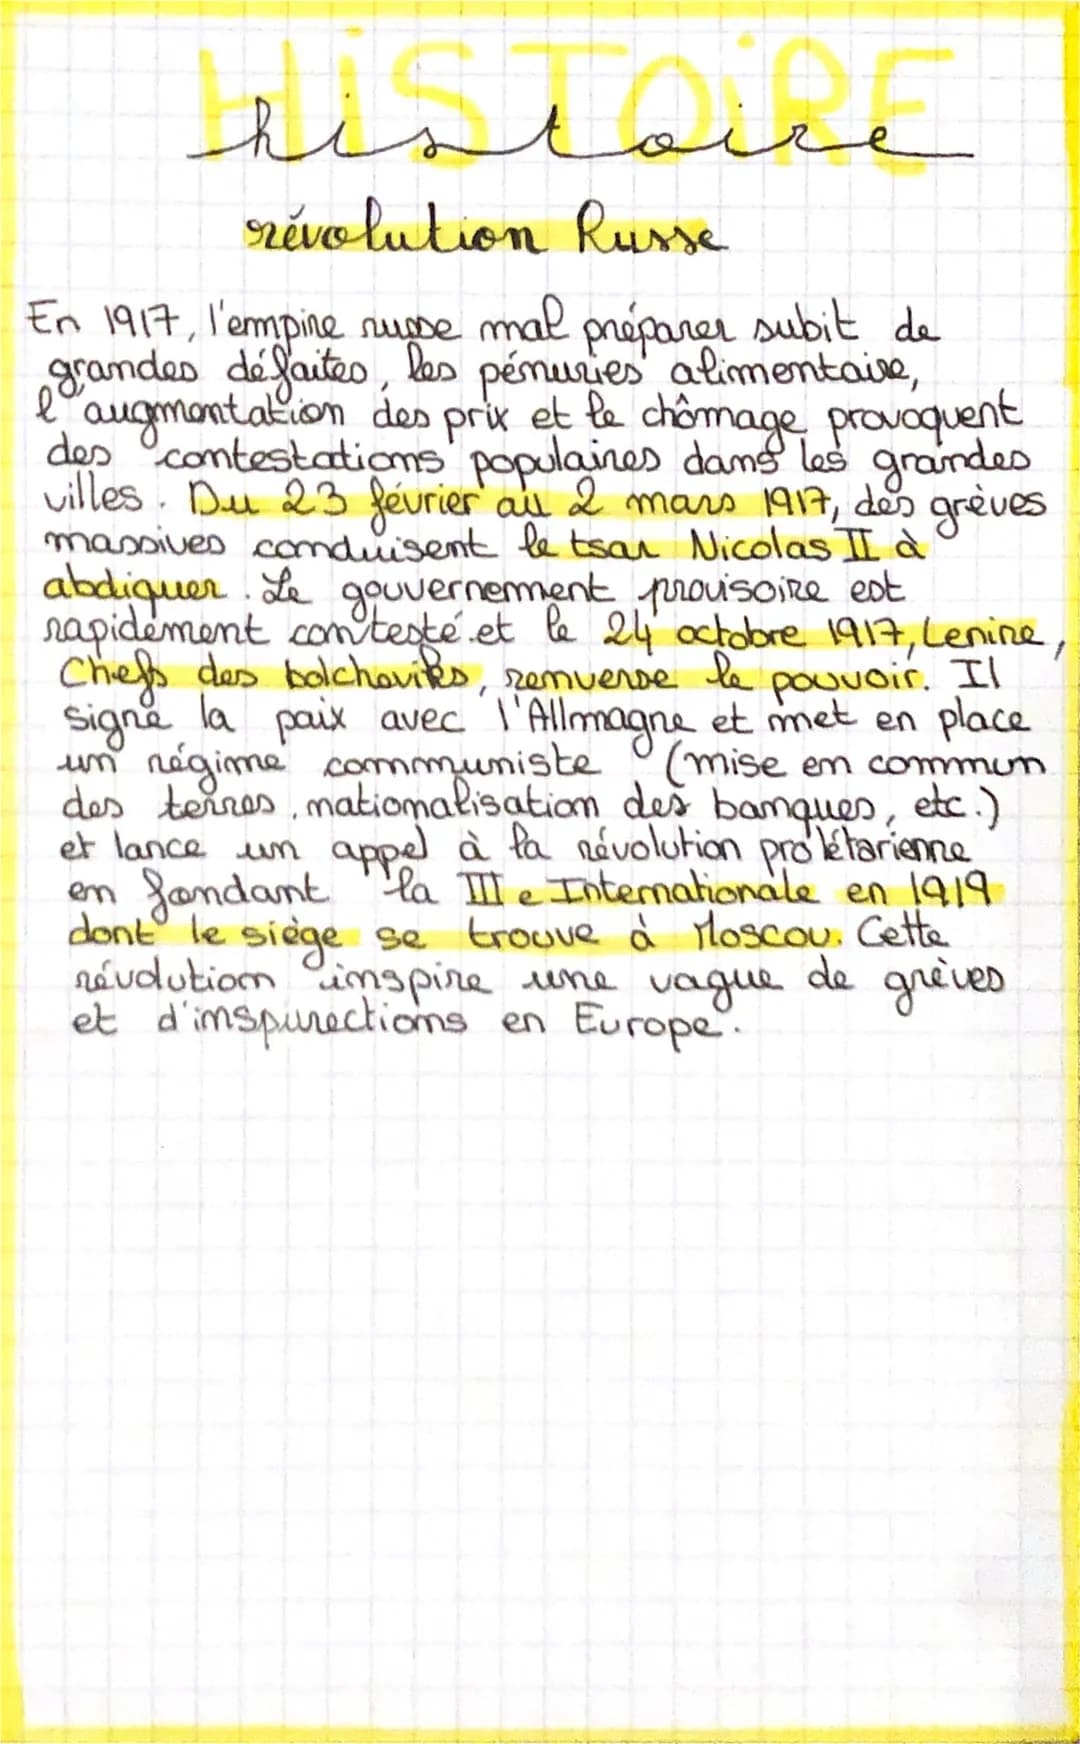 HiSTOiRE
histoire
révolution Russe
En 1917, l'empire russe mal préparer subit de
grandes défaites, les pénuries alimentaire,
l'augmentation des prix et le chômage provoquent
des contestations populaires dans les grandes
villes. Du 23 février au 2 mars 1917, des grèves
massives conduisent le tsar Nicolas II à
abdiquer. Le gouvernement provisoire est
rapidement contesté et le 24 octobre 1917, Lenine,
Chefs des bolcheviks, renverse le pouvoir. Il
signe la paix avec l'Allmagne et met en place
un régime communiste (mise en commun
des terres, nationalisation des banques, etc.)
et lance un appel à la révolution prolétarienne
en fondant la III e Internationale en 1919
dont le siège se trouve à Moscou. Cette
révolution inspire une vague de grèves
et d'inspurections en Europe.